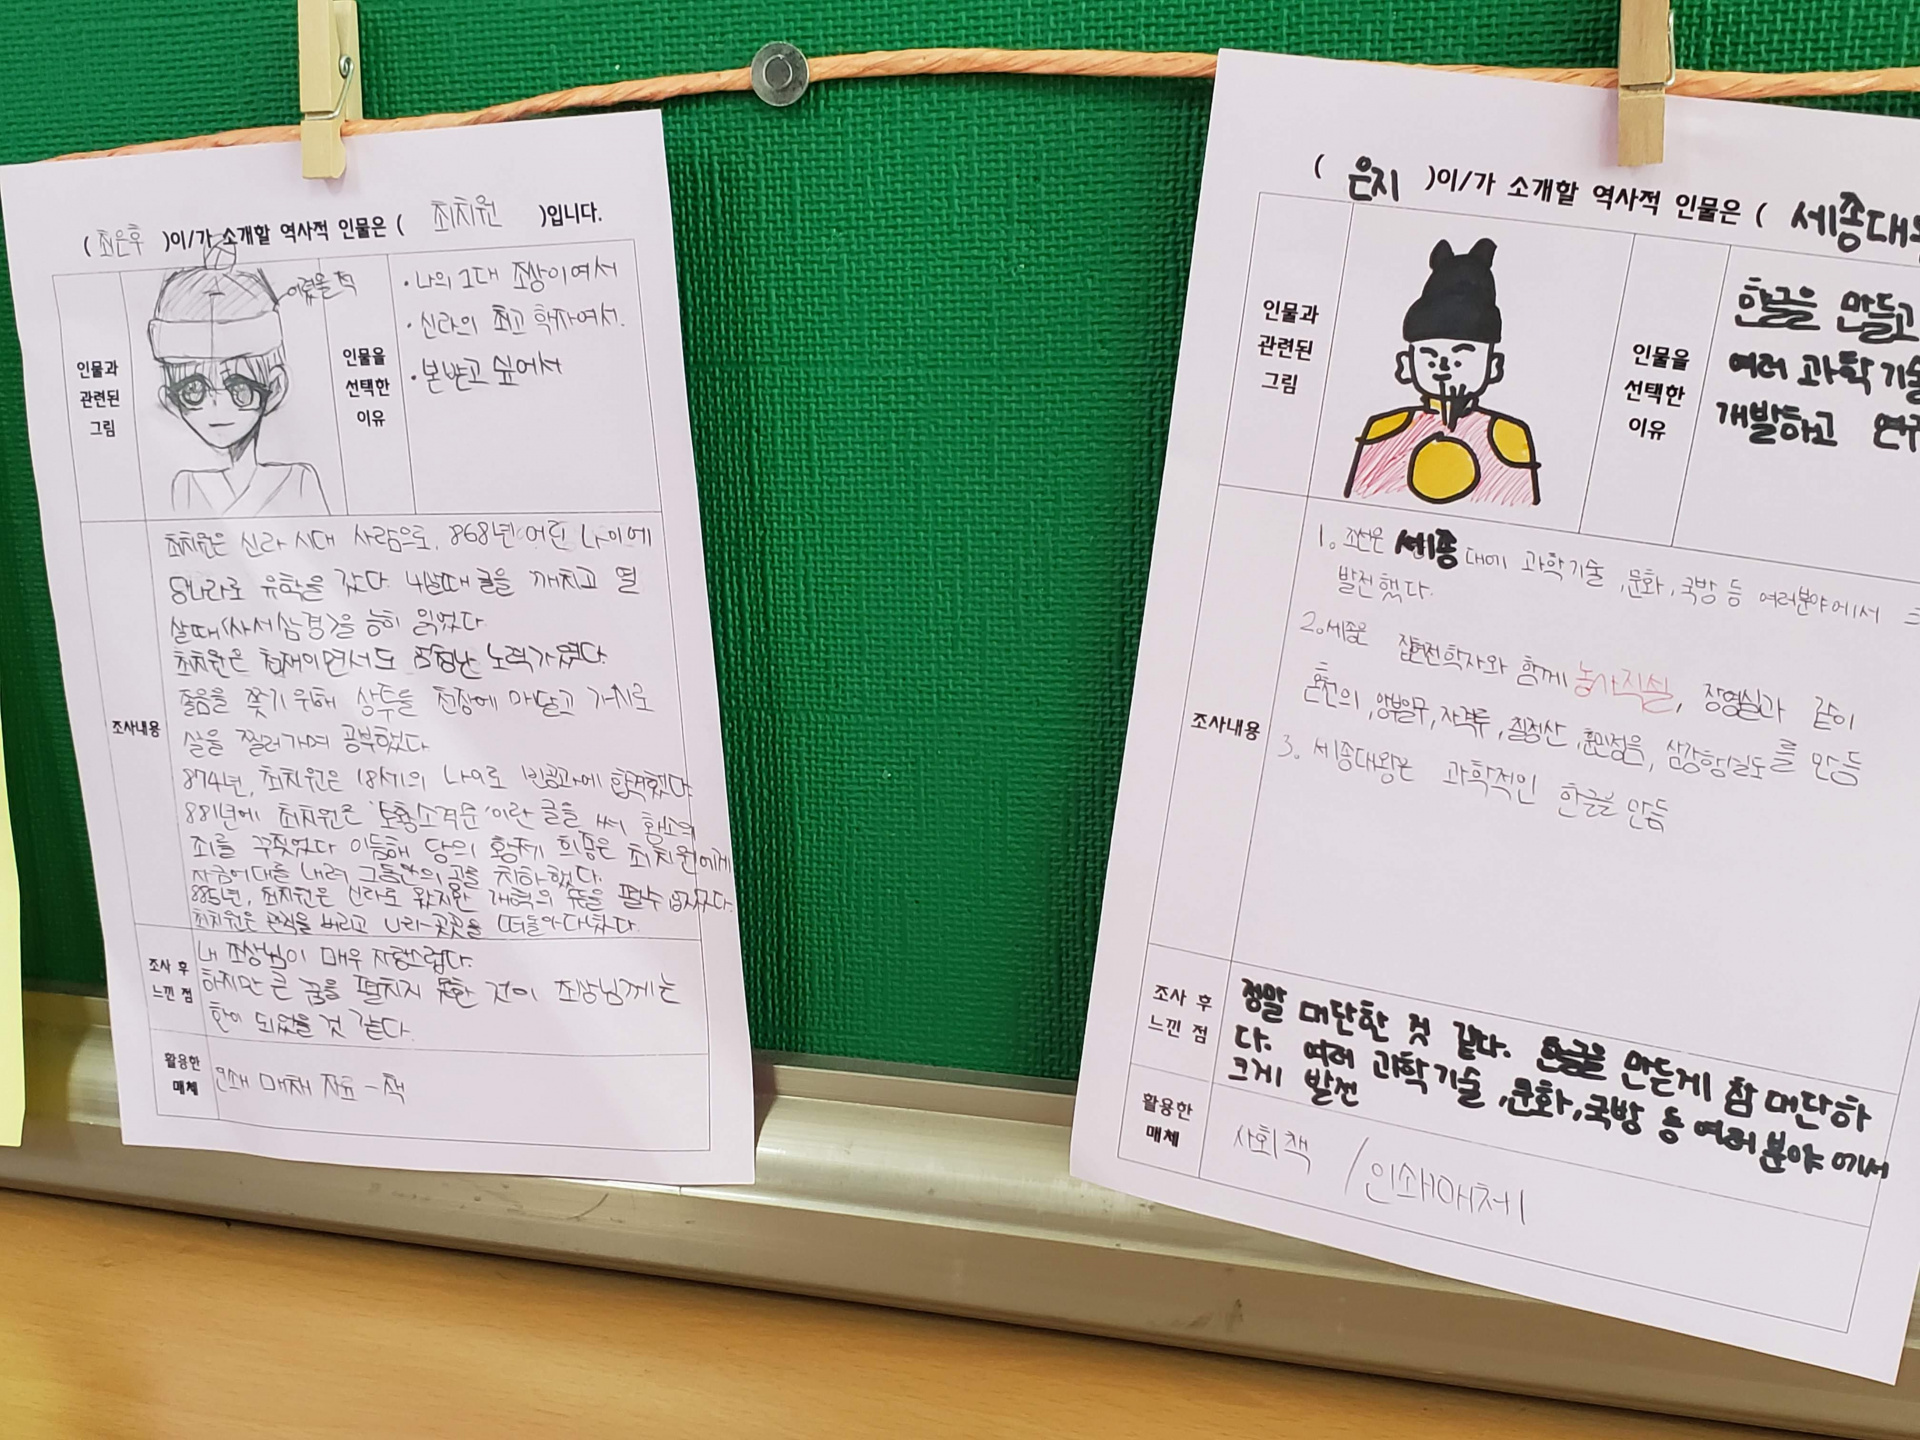 ( 최은후 )이/가 소개할 역사적 인물은 ( 최치원 )입니다.
인물과
관련된
그림
어렸을 적
인물을
선택한
이유
· 나의 1대 조상이여서
· 신라의 최고 학자여서.
· 본받고 싶어서
조사내용
최치원은 신라 시대 사람으로, 868년 어린 나이에
당나라로 유학을 갔다. 4살때 글을 깨치고 열
살때 <사서삼경>을 능히 읽었다
최치원은 천재이면서도 엄청난 노력가였다.
졸음을 쫓기 위해 상투를 천장에 매달고 가시로
살을 찔러가며 공부했다
874년, 최치원은 18세의 나이로 빈공과에 합격했다
881년에 최치원은 '토황소격문'이란 글을 써 황소의
죄를 꾸짖었다 이듬해 당의 황제 희종은 최치원에게
자금어대를 내려 그동안의 공을 치하했다.
885년, 최치원은 신라로 왔지만 개혁의 뜻을 펼수 없자
최치원은 관직을 버리고 나라 곳곳을 떠돌아 다녔다.
조사 후
느낀 점
내 조상님이 매우 자랑스럽다.
하지만 큰 꿈을 펼치지 못한 것이 조상님께는
한이 되었을 것 같다.
활용한
매체
인쇄 매체 자료 - 책
( 은지 )이/가 소개할 역사적 인물은 ( 세종대
인물과
관련된
그림
인물을
선택한
이유
한글을 만들고
여러 과학 기술
개발하고 연구
조사내용
1. 조선은 세종 대에 과학기술, 문화, 국방 등 여러분야에서
발전했다.
2. 세종은 집현전 학자와 함께 농사직설, 장영실과 같이
혼천의, 앙부일구, 자격루, 칠정산, 훈민정음, 삼강행실도를 만듦
3. 세종대왕은 과학적인 한글을 만듦
조사 후
느낀 점
정말 대단한 것 같다. 한글을 만든게 참 대단하
다. 여러 과학기술, 문화, 국방 등 여러 분야에서
크게 발전
활용한
매체
사회책 / 인쇄매체